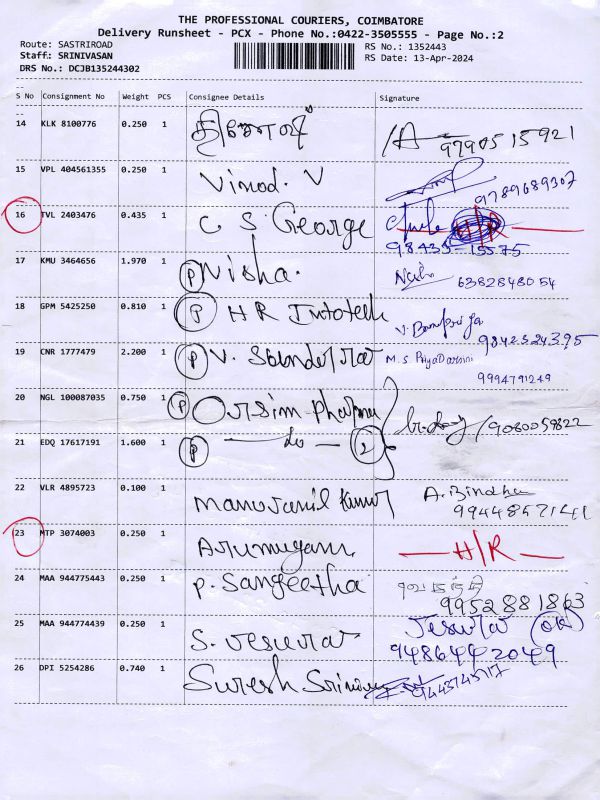 THE PROFESSIONAL COURIERS, COIMBATORE
Delivery Runsheet - PCX - Phone No.:0422-3505555 - Page No.:2
Route: SASTRIROAD RS No.: 1352443
Staff: SRINIVASAN RS Date: 13-Apr-2024
DRS No.: DCJB135244302
S No Consignment No Weight PCS Consignee Details Signature
14 KLK 8100776 0.250 1 9790515921
15 VPL 404561355 0.250 1 Vinod. V 9789689307
16 TVL 2403476 0.435 1 C S George H/R
98435-15575
17 KMU 3464656 1.970 1 (P) Nisha. 6382848054
18 GPM 5425250 0.810 1 (P) HR Infotech
9842524395
19 CNR 1777479 2.200 1 (P) V. M.S PriyaDarsini
9994791249
20 NGL 100087035 0.750 1 (P) Orsim Pharma 9080059822
21 EDQ 17617191 1.600 1 (P) — do — (2)
22 VLR 4895723 0.100 1 Kumar A. Bindhu
9944857141
23 MTP 3074003 0.250 1 Arumugam — H/R —
24 MAA 944775443 0.250 1 P. Sangeetha
9952881863
25 MAA 944774439 0.250 1 S. Jesuraj
9486442049
26 DPI 5254286 0.740 1 Suresh 9443745717